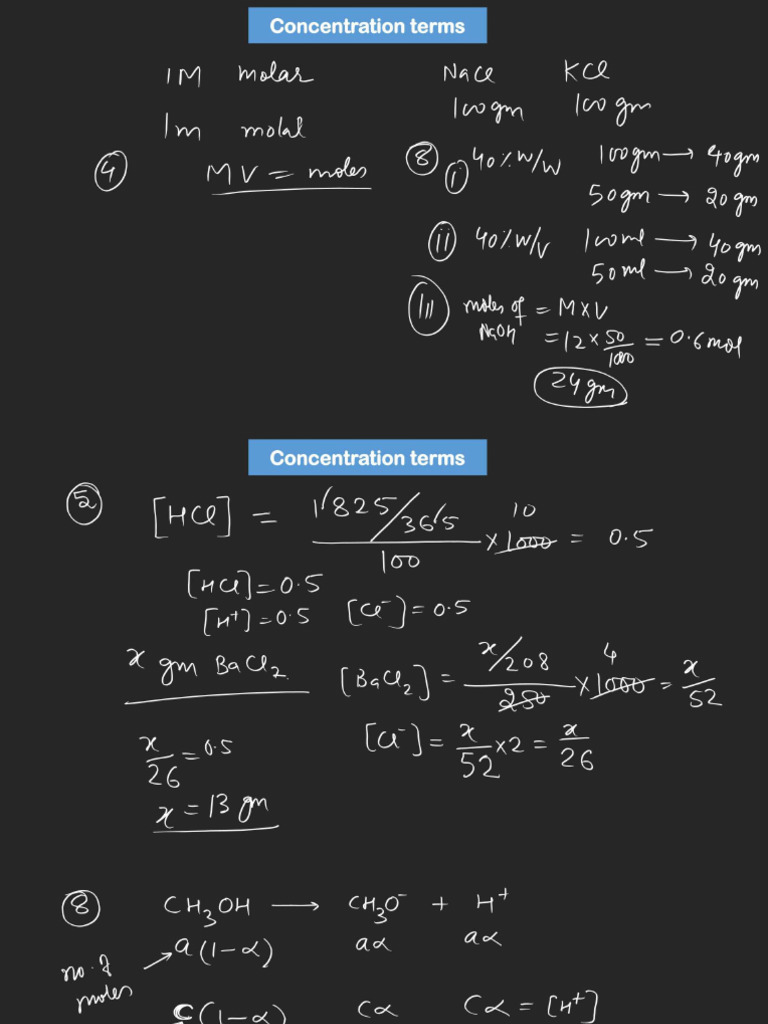 Concentration terms
1M molar
1m molal
④ MV = moles
NaCl KCl
100gm 100gm
⑧ ⓘ 40% w/w 100gm → 40gm
50gm → 20gm
ⓘⓘ 40% w/v 100ml → 40gm
50ml → 20gm
ⓘⓘⓘ moles of NaOH = M×V
= 12 × 50/1000 = 0.6mol
24gm
Concentration terms
⑤ [HCl] = 1.825/36.5 / 100 × 1000 10 = 0.5
[HCl] = 0.5
[H⁺] = 0.5 [Cl⁻] = 0.5
x gm BaCl₂ [BaCl₂] = x/208 / 250 × 1000 4 = x/52
[Cl⁻] = x/52 × 2 = x/26
x/26 = 0.5
x = 13 gm
⑧ CH₃OH → CH₃O⁻ + H⁺
no. of moles → a(1-α) aα aα
C(1-α) Cα Cα = [H⁺]